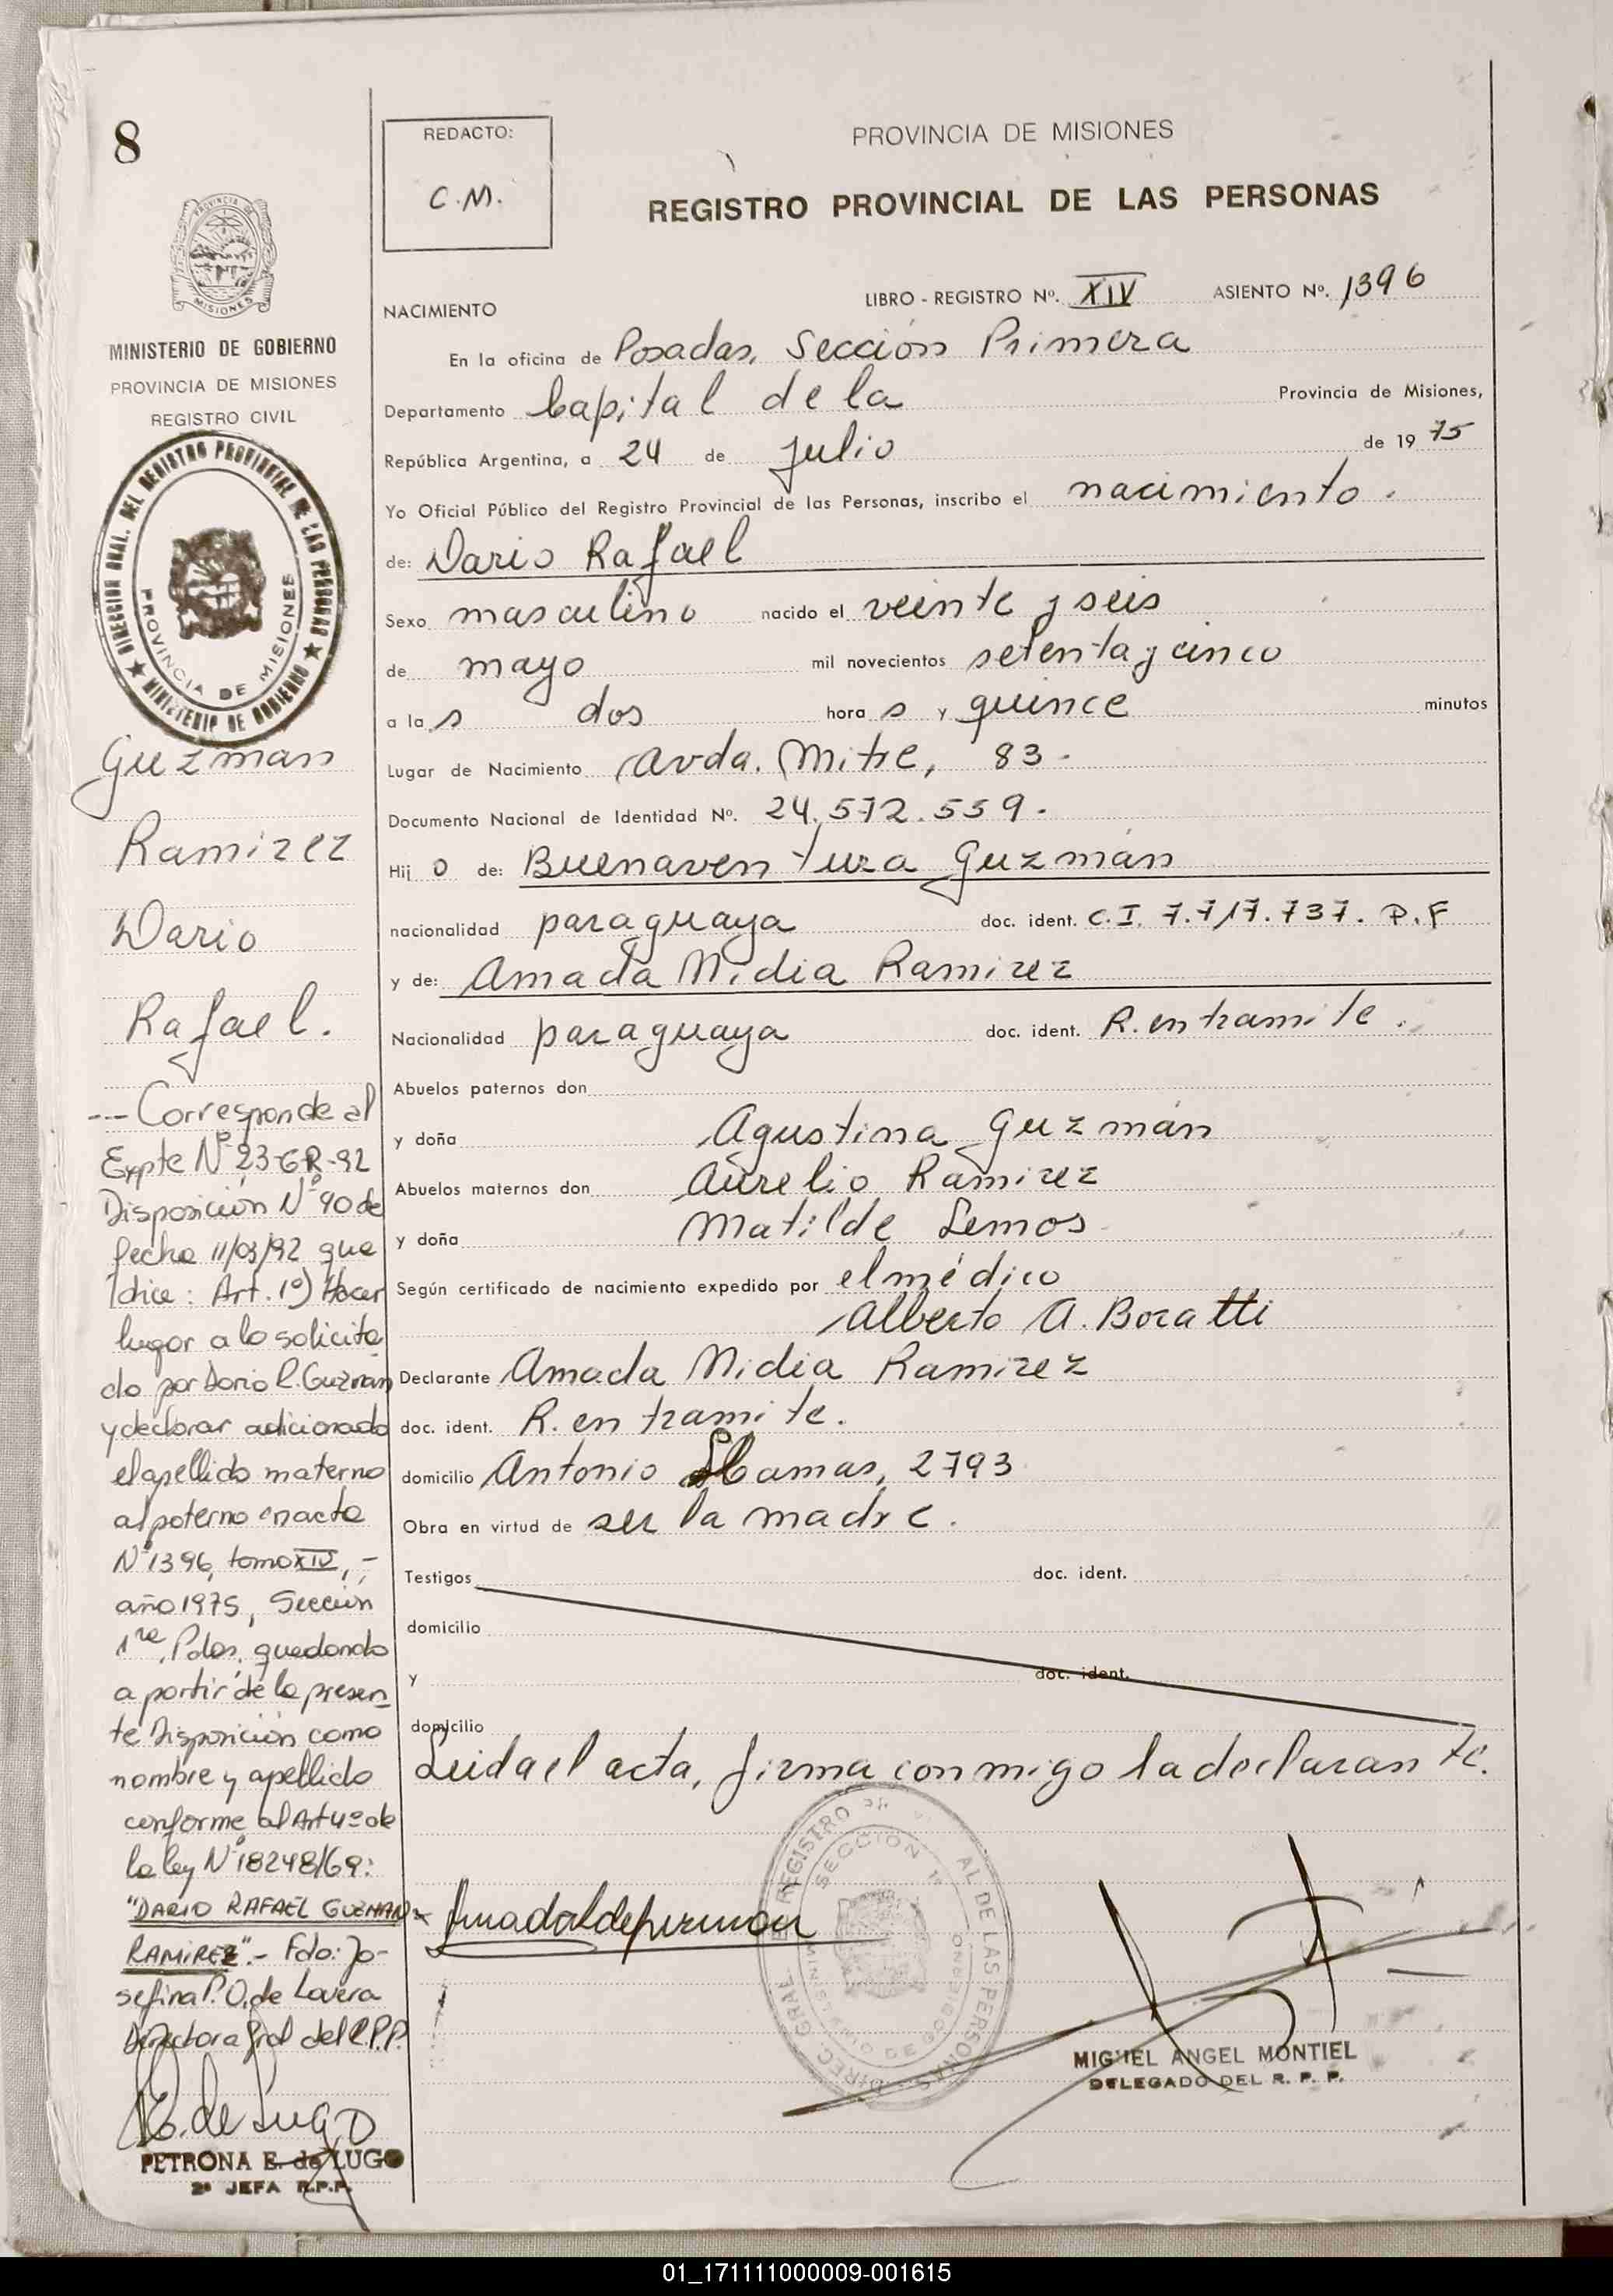 8
REDACTO:
C.M.
PROVINCIA DE MISIONES
REGISTRO PROVINCIAL DE LAS PERSONAS
PROVINCIA DE
MISIONES
MINISTERIO DE GOBIERNO
PROVINCIA DE MISIONES
REGISTRO CIVIL
DIRECCION GRAL. DEL REGISTRO PROVINCIAL DE LAS PERSONAS
PROVINCIA DE MISIONES
MINISTERIO DE GOBIERNO
Guzman
Ramirez
Dario
Rafael.
--- Corresponde al
Expte Nº 23-GR-92
Disposición Nº 90 de
fecha 11/03/92 que
dice: Art. 1º) Hacer
lugar a lo solicita
do por Dario R. Guzman
y declarar adicionado
el apellido materno
al paterno en acta
Nº 1396, tomo XIV, -
año 1975, Sección
1ra, Pdas, quedando
a partir de la presen
te Disposición como
nombre y apellido
conforme al Art 4º de
la ley Nº 18248/69:
"DARIO RAFAEL GUZMAN
RAMIREZ".- Fdo: Jo-
sefina P. O. de Lovera
Directora Gral del R.P.P.
E. de Lugo
PETRONA E. de LUGO
2ª JEFA R.P.P.
NACIMIENTO
LIBRO - REGISTRO Nº. XIV ASIENTO Nº. 1396
En la oficina de Posadas, Sección Primera
Departamento Capital de la Provincia de Misiones,
República Argentina, a 24 de julio de 1975
Yo Oficial Público del Registro Provincial de las Personas, inscribo el nacimiento.
de: Dario Rafael
Sexo masculino nacido el veinte y seis
de mayo mil novecientos setenta y cinco
a las dos horas y quince minutos
Lugar de Nacimiento Avda. Mitre, 83-
Documento Nacional de Identidad Nº. 24.572.559.
Hijo de: Buenaventura Guzmán
nacionalidad paraguaya doc. ident. C.I. 7.717.737. P.F
y de: Amada Nidia Ramirez
Nacionalidad paraguaya doc. ident. R. en tramite.
Abuelos paternos don
y doña Agustina Guzmán
Abuelos maternos don Aurelio Ramirez
y doña Matilde Lemos
Según certificado de nacimiento expedido por el médico
Alberto A. Boratti
Declarante Amada Nidia Ramirez
doc. ident. R. en tramite.
domicilio Antonio Llamas, 2793
Obra en virtud de ser la madre.
Testigos doc. ident.
domicilio
y doc. ident.
domicilio
Leida el acta, firma conmigo la declarante.
SECCION 1ª
MIGUEL ANGEL MONTIEL
DELEGADO DEL R. P. P.
01_171111000009-001615